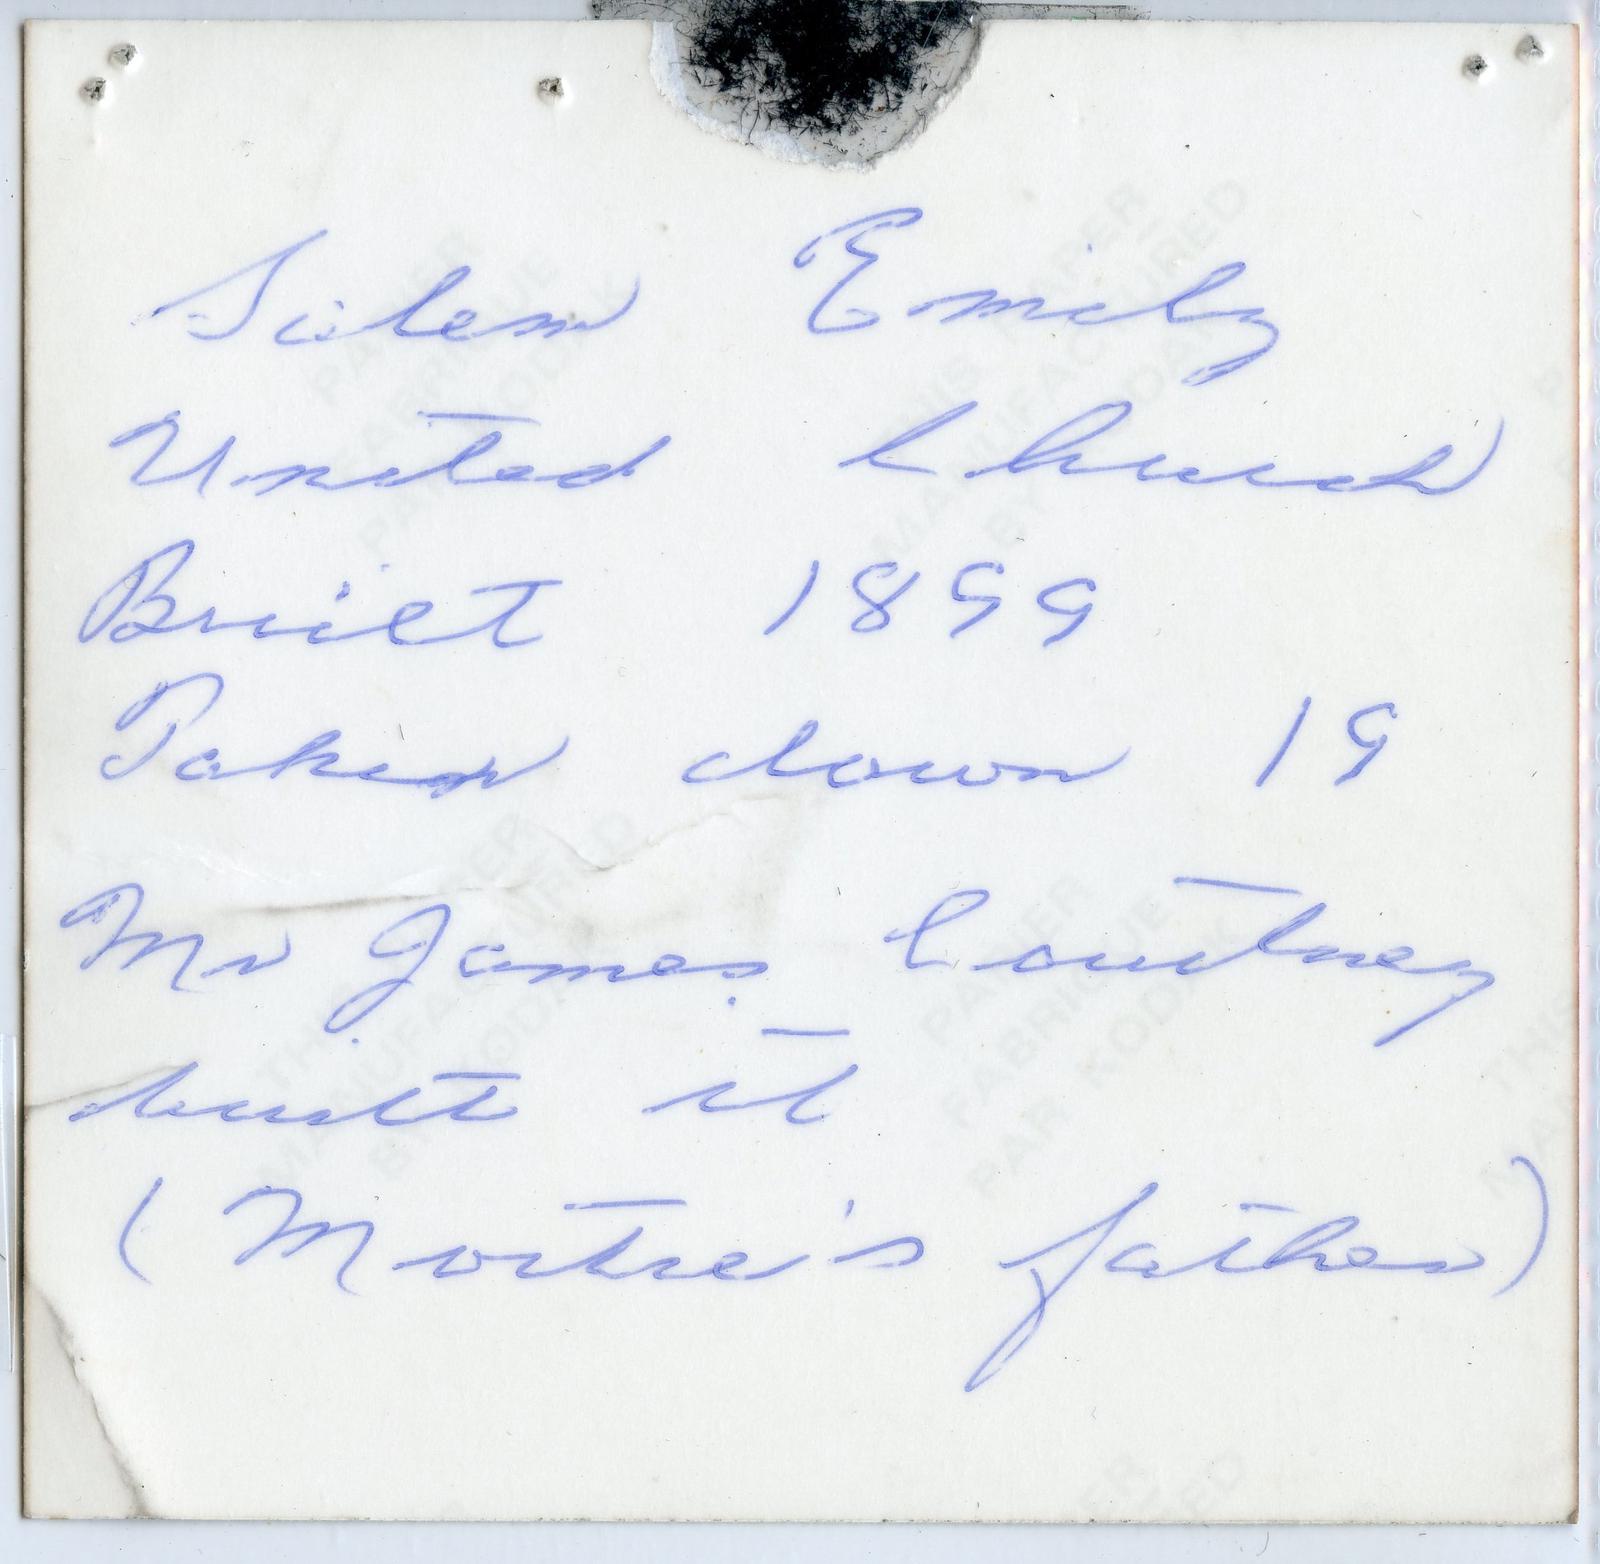 Salem Emily
United Church
Built 1899
Taken down 19
Mr James Courtney
built it
(Mortie's father)
THIS PAPER
MANUFACTURED
BY KODAK
PAPIER
FABRIQUE
PAR KODAK